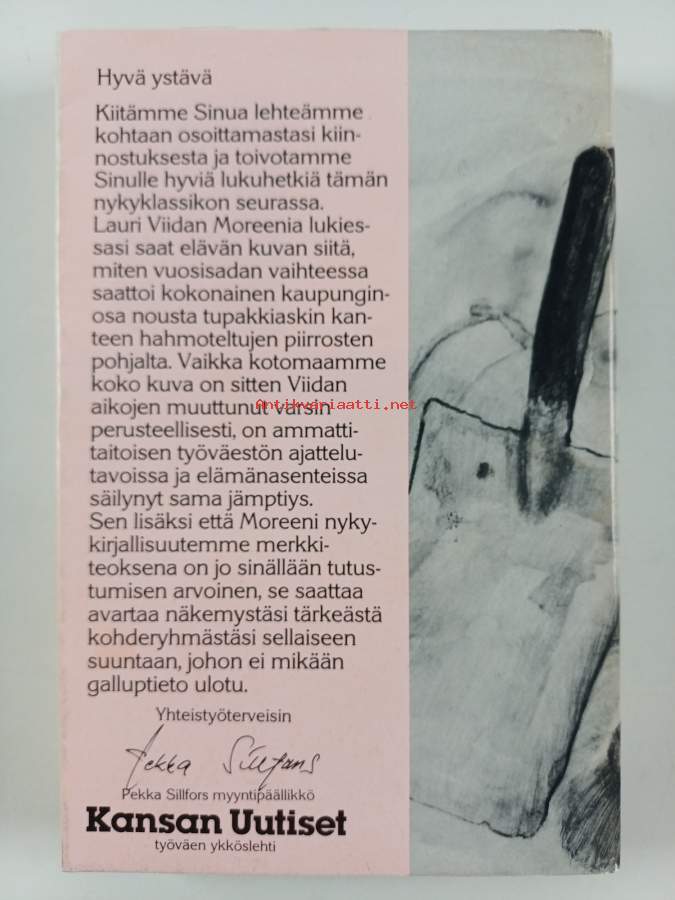 Hyvä ystävä
Kiitämme Sinua lehteämme
kohtaan osoittamastasi kiin-
nostuksesta ja toivotamme
Sinulle hyviä lukuhetkiä tämän
nykyklassikon seurassa.
Lauri Viidan Moreenia lukies-
sasi saat elävän kuvan siitä,
miten vuosisadan vaihteessa
saattoi kokonainen kaupungin-
osa nousta tupakkiaskin kan-
teen hahmoteltujen piirrosten
pohjalta. Vaikka kotomaamme
koko kuva on sitten Viidan
aikojen muuttunut varsin
Antikvariaatti.net
perusteellisesti, on ammatti-
taitoisen työväestön ajattelu-
tavoissa ja elämänasenteissa
säilynyt sama jämptiys.
Sen lisäksi että Moreeni nyky-
kirjallisuutemme merkki-
teoksena on jo sinällään tutus-
tumisen arvoinen, se saattaa
avartaa näkemystäsi tärkeästä
kohderyhmästäsi sellaiseen
suuntaan, johon ei mikään
galluptieto ulotu.
Yhteistyöterveisin
Pekka Sillfors
Pekka Sillfors myyntipäällikkö
Kansan Uutiset
työväen ykköslehti